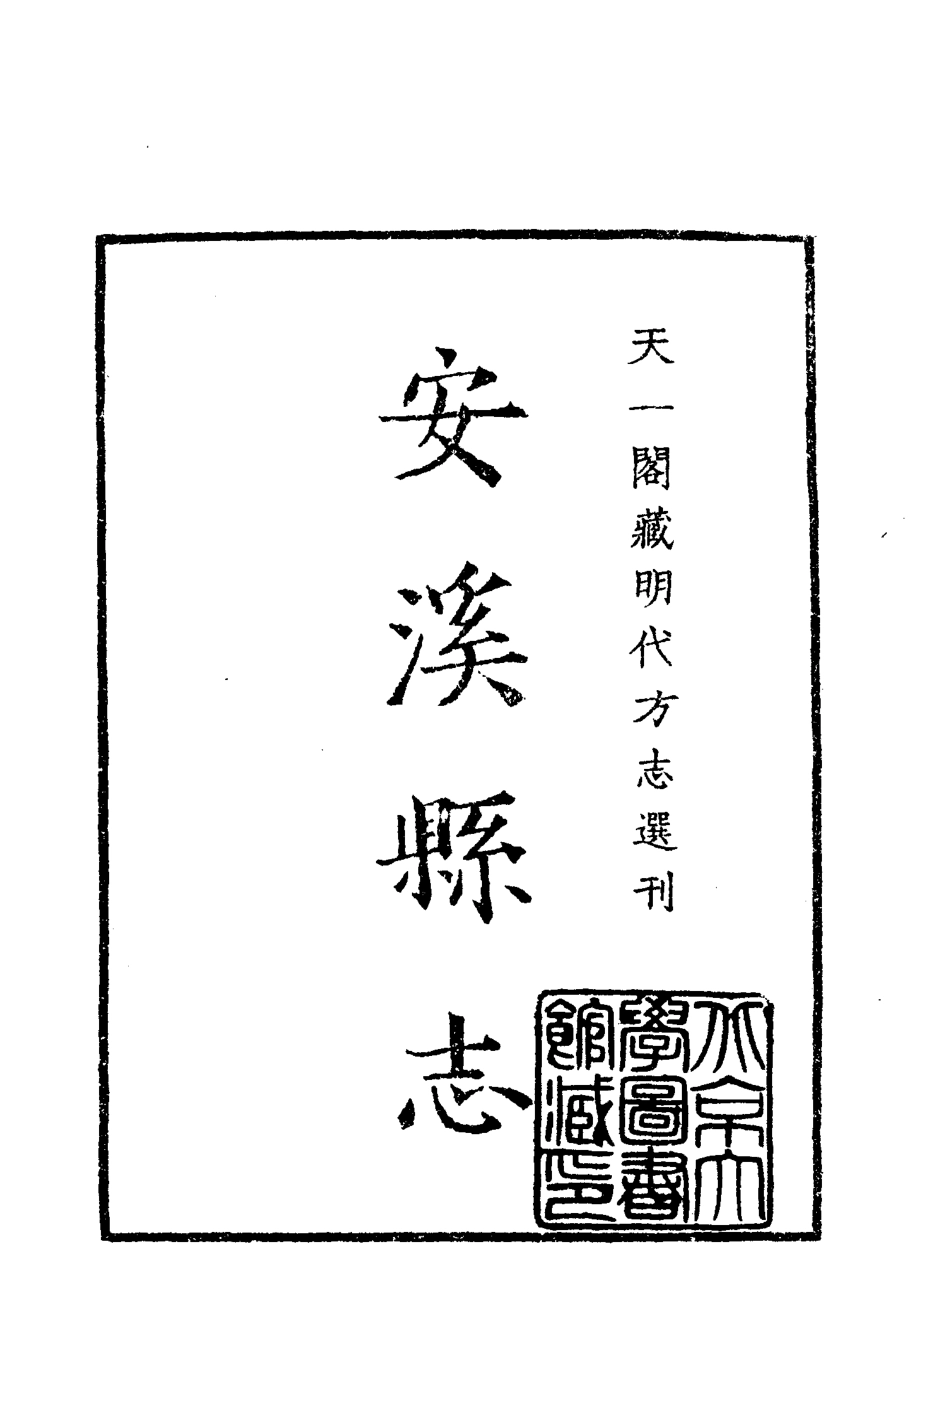 天一閣藏明代方志選刊
安溪縣志
北京大
學圖書
館藏印